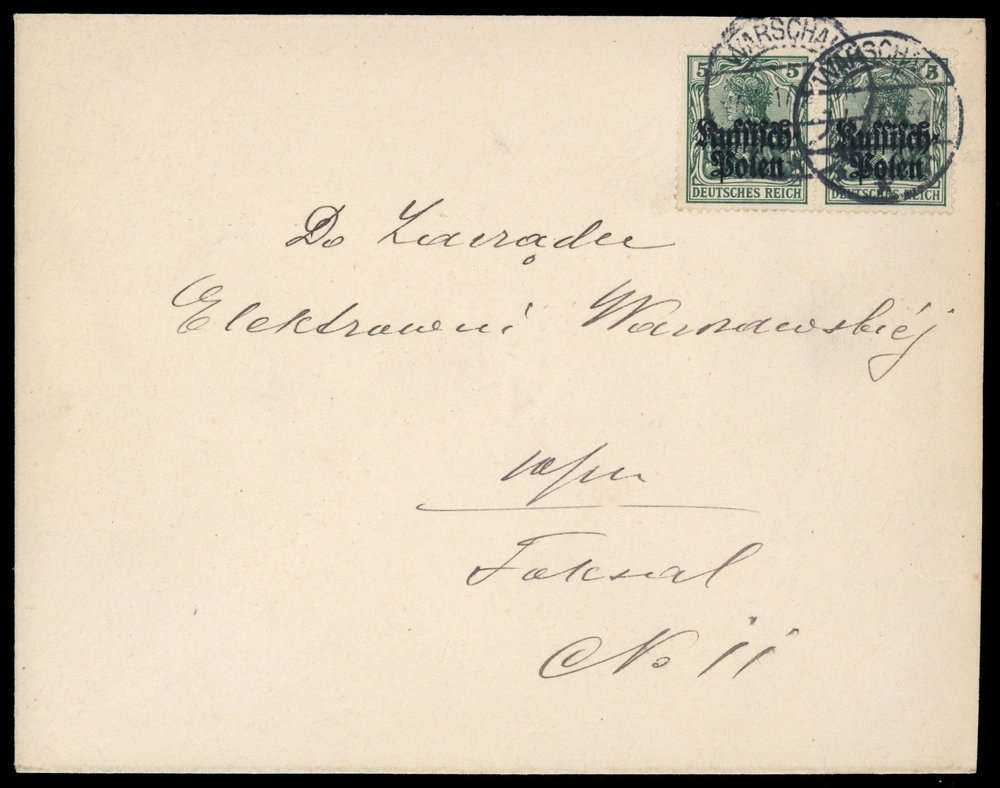 WARSCHAU WARSCHAU
5 5 5
Russisch- Russisch-
Polen Polen
DEUTSCHES REICH DEUTSCHES REICH
Do Zarządu
Elektrowni Warszawskiéj
Foksal
No 11